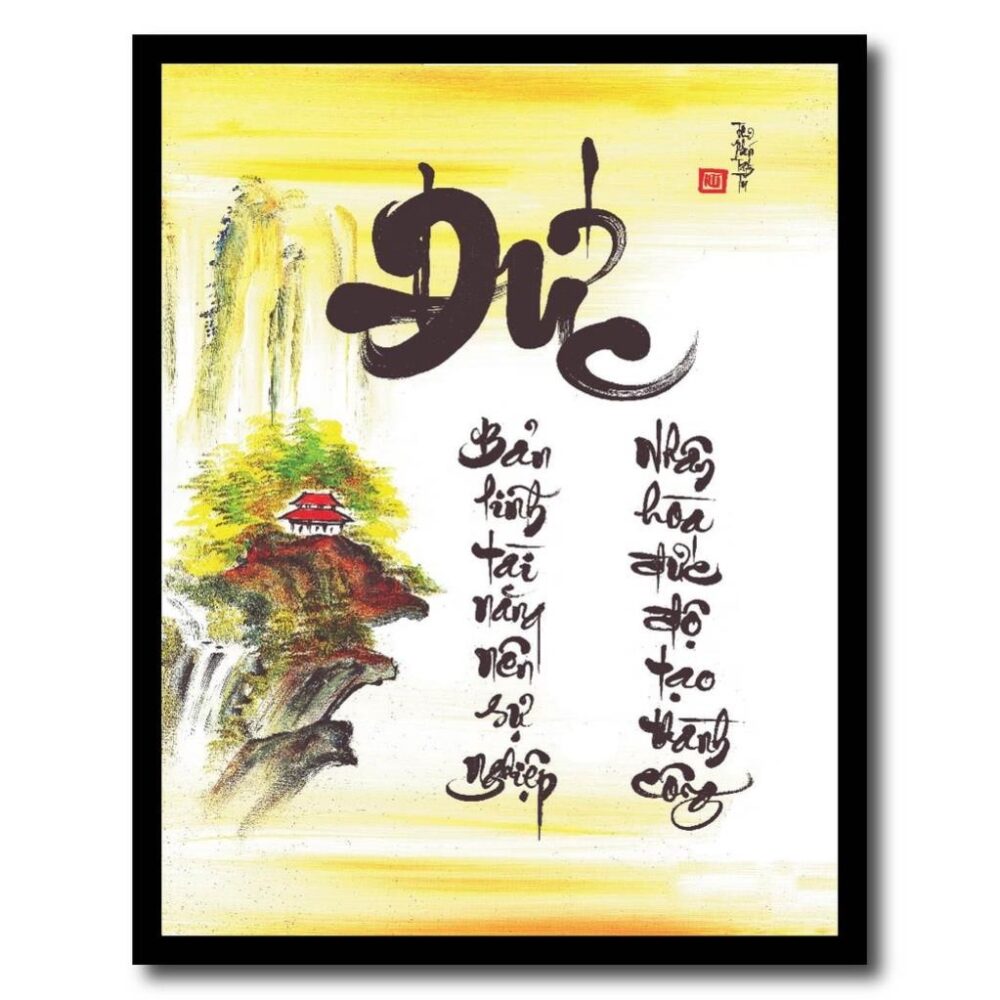 Đức
Bản
lĩnh
tài
năng
nên
sự
nghiệp
Nhân
hòa
đức
độ
tạo
thành
công